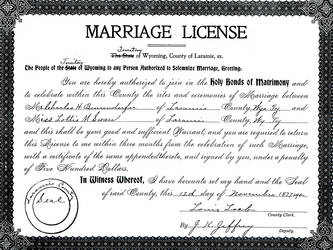 MARRIAGE LICENSE
Territory
The State of Wyoming, County of Laramie, ss.
Territory
The People of the State of Wyoming to any Person Authorized to Solemnize Marriage, Greeting:
You are hereby authorized to join in the Holy Bonds of Matrimony and
to celebrate within this County the rites and ceremonies of Marriage between
Mr. Charles H. of Laramie County, Wyo Ty and
Miss Lottie M. Swan of Laramie County, Wyo Ty
and this shall be your good and sufficient Warrant, and you are required to return
this License to me within three months from the celebration of such Marriage,
with a certificate of the same appended thereto, and signed by you, under a penalty
of Five Hundred Dollars.
In Witness Whereof, I have hereunto set my hand and the Seal
of said County, this 12th day of November 1877
Laramie County
Seal
County Clerk.
By J. K. Jeffrey